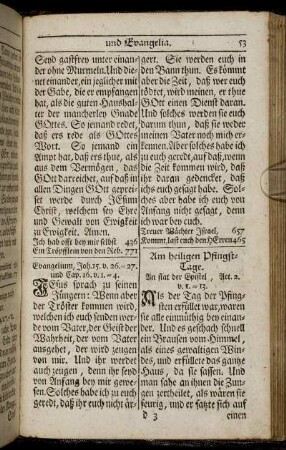 und Evangelia. 53
Seyd gastfrey unter einan-
der ohne Murmeln. Und die-
net einander, ein jeglicher mit
der Gabe, die er empfangen
hat, als die guten Haushal-
ter der mancherley Gnade
GOttes. So jemand redet,
daß ers rede als GOttes
Wort. So jemand ein
Ampt hat, daß ers thue, als
aus dem Vermögen, das
GOtt darreichet, auf daß in
allen Dingen GOtt geprei-
set werde durch JEsum
Christ, welchem sey Ehre
und Gewalt von Ewigkeit
zu Ewigkeit. Amen.
Ich hab offt bey mir selbst 436
Ein Tröpfflein von den Reb. 771
Evangelium, Joh. 15. v. 26. - 27.
und Cap. 16. v. 1. - 4.
JEsus sprach zu seinen
Jüngern: Wenn aber
der Tröster kommen wird,
welchen ich euch senden werde
vom Vater, der Geist der
Wahrheit, der vom Vater
ausgehet, der wird zeugen
von mir. Und ihr werdet
auch zeugen, denn ihr seyd
von Anfang bey mir gewe-
sen. Solches habe ich zu euch
geredt, daß ihr euch nicht är-
gert. Sie werden euch in
den Bann thun. Es kömmt
aber die Zeit, daß wer euch
tödtet, wird meinen, er thue
GOtt einen Dienst daran.
Und solches werden sie euch
darum thun, daß sie weder
meinen Vater noch mich er-
kennen. Aber solches habe ich
zu euch geredt, auf daß, wenn
die Zeit kommen wird, daß
ihr daran gedencket, daß
ichs euch gesagt habe. Sol-
ches aber habe ich euch von
Anfang nicht gesagt, denn
ich war bey euch.
Treuer Wächter Israel, 657
Kommt, last euch den HErren 465
Am heiligen Pfingst-
Tage.
An stat der Epistel, Act. 2.
v. 1. - 13.
Als der Tag der Pfing-
sten erfüllet war, waren
sie alle einmüthig bey einan-
der. Und es geschach schnell
ein Brausen vom Himmel,
als eines gewaltigen Win-
des, und erfüllete das gantze
Haus, da sie sassen. Und
man sahe an ihnen die Zun-
gen zertheilet, als wären sie
feurig, und er satzte sich auf
d 3 einen